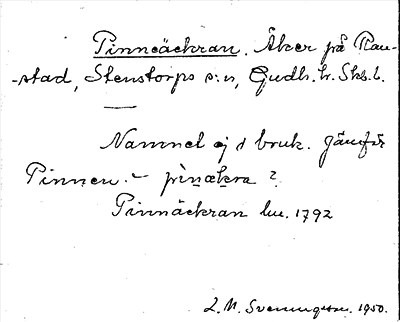 Pinneäckran. Åker på Rau-
-stad, Stenstorps s:n, Gudh. h. Skb. l.
Namnet ej i bruk. Jämför
Pinnen. – pìnækra ?
Pinnäckran lm. 1792
L. M. Svenungsson. 1950.